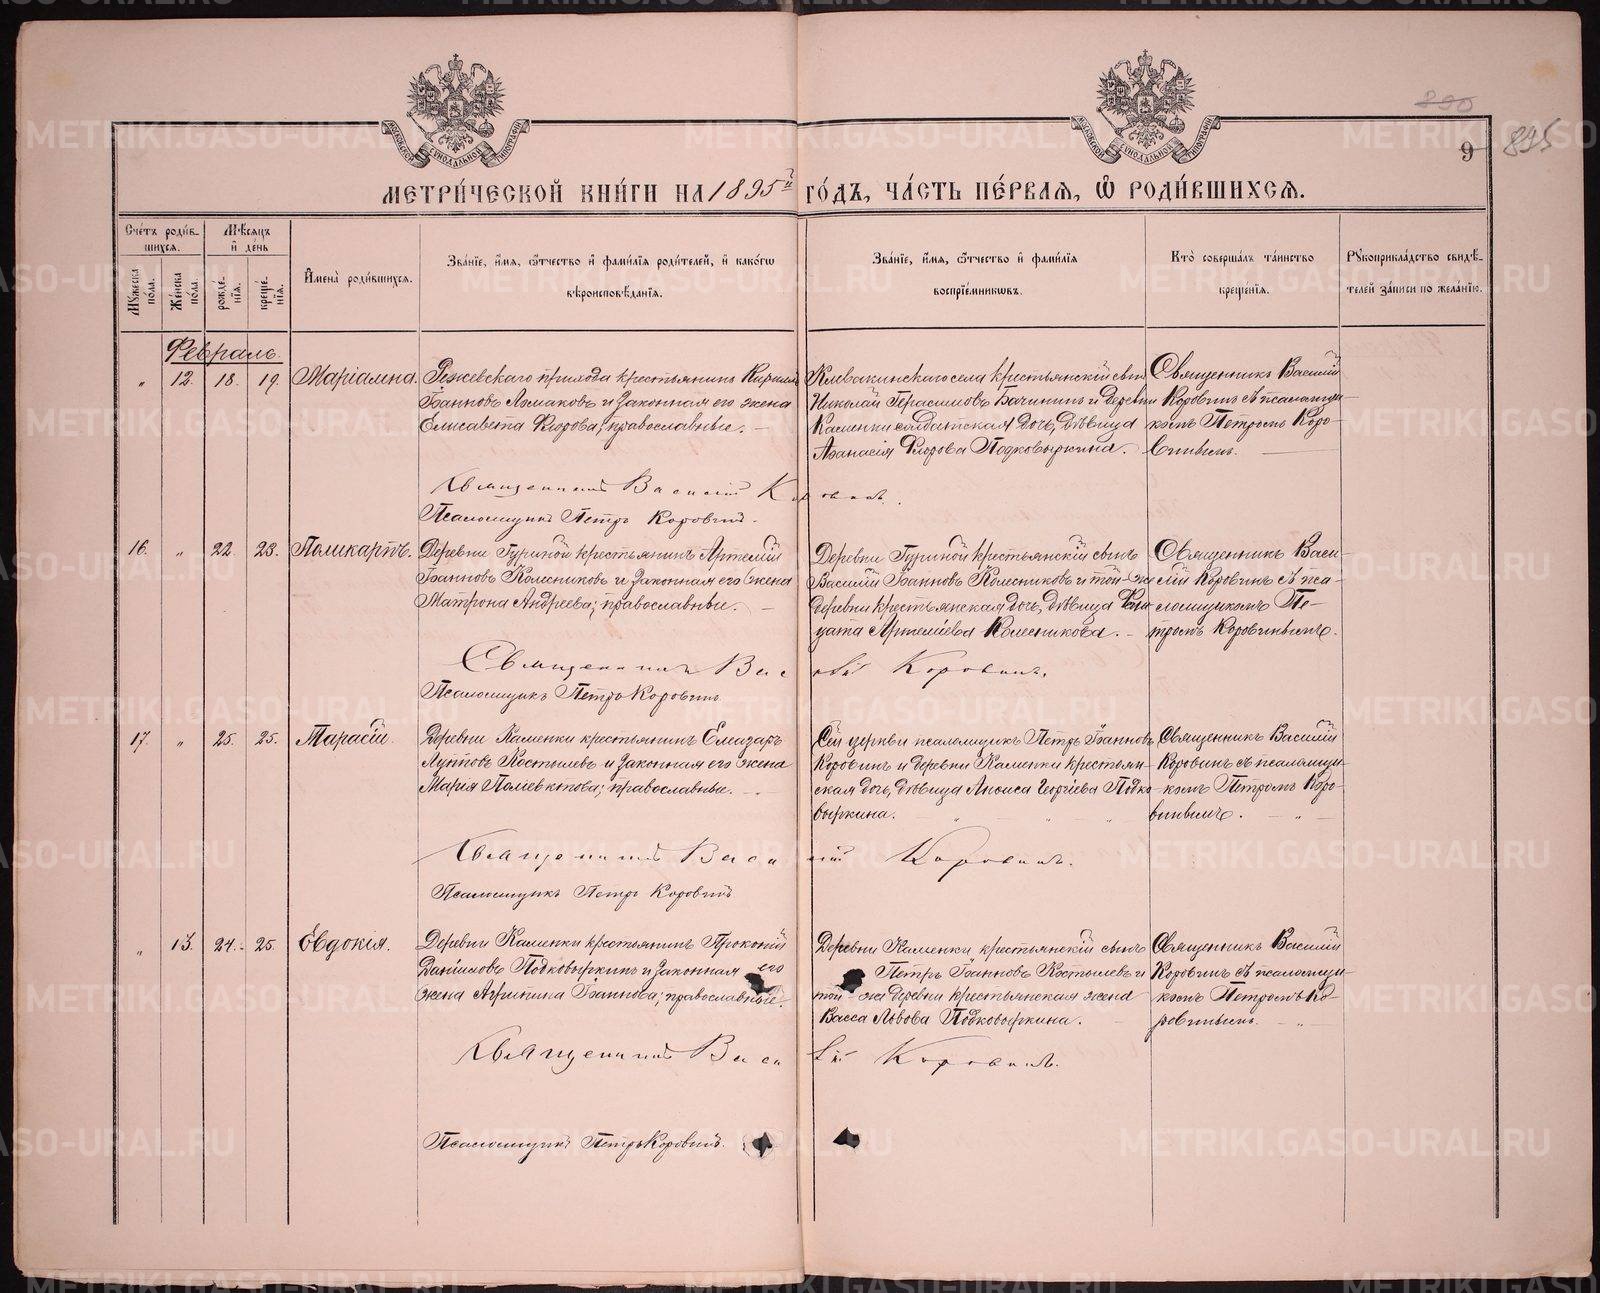 895
9
МОСКОВСКОЙ СѴНОДАЛЬНОЙ ТИПОГРАФІИ
МОСКОВСКОЙ СѴНОДАЛЬНОЙ ТИПОГРАФІИ
МЕТРИ́ЧЕСКОЙ КНИ́ГИ НА 1895й ГО́ДЪ, ЧА́СТЬ ПЕ́РВАѦ, Ѡ РОДИ́ВШИХСѦ.
Сче́тъ роди́в-
шихсѧ.
Мѣ́сѧцъ
и҆ де́нь
Му́жеска
по́ла.
Же́нска
по́ла.
рожде́-
нїѧ.
креще́-
нїѧ.
И҆мена̀ роди́вшихсѧ.
Зва́нїе, и҆́мѧ, ѻ҆́тчество и҆ фами́лїѧ роди́телей, и҆ како́гѡ
вѣроисповѣ́данїѧ.
Зва́нїе, и҆́мѧ, ѻ҆́тчество и҆ фами́лїѧ
воспрїе́мникѡвъ.
Кто̀ соверша́лъ та́инство
креще́нїѧ.
Рꙋкоприкла́дство свидѣ́-
телей за́писи по жела́нїю.
Февраль.
„ 12. 18. 19. Маріамна.
Режевскаго прихода крестьянинъ Кириллъ
Іоанновъ Ломаковъ и законная его жена
Елисавета Ѳ; православные. —
Клевакинскаго села крестьянскій сынъ
Николай Герасимовъ Бачининъ и деревни
Каменки солдатская дочь, дѣвица
Аѳанасія Флорова Подковыркина.
Священникъ Василій
Коровинъ съ псаломщи-
комъ Петромъ Коро-
винымъ. —
Священникъ Василій Коровинъ.
Псаломщикъ Петръ Коровинъ.
16. „ 22. 23. Поликарпъ.
Деревни Гуриной крестьянинъ Артемій
Іоанновъ Колесниковъ и законная его жена
Матрона Андреева; православные. —
Деревни Гуриной крестьянскій сынъ
Василій Іоанновъ Колесниковъ и той-же
деревни крестьянская дочь, дѣвица
Артеміева Колесникова. —
Священникъ Васи-
лій Коровинъ съ пса-
ломщикомъ Пе-
тромъ Коровинымъ.
Священникъ Василій Коровинъ.
Псаломщикъ Петръ Коровинъ
17. „ 25. 25. Тарасій.
Деревни Каменки крестьянинъ Елеазаръ
Лупповъ Костылевъ и законная его жена
Марія Поліевктова; православные. — „ —
Сей церкви псаломщикъ Петръ Іоанновъ
Коровинъ и деревни Каменки крестьян-
ская дочь, дѣвица Анѳиса Георгіева Подко-
выркина. — „ „ „
Священникъ Василій
Коровинъ съ псаломщи-
комъ Петромъ Коро-
винымъ. — „ —
Священникъ Василій Коровинъ.
Псаломщикъ Петръ Коровинъ
„ 13. 24. 25. Евдокія.
Деревни Каменки крестьянинъ Прокопій
Даніиловъ Подковыркинъ и законная его
жена Агрипина Іоаннова; православные.
Деревни Каменки, крестьянскій сынъ
Петръ Іоанновъ Костылевъ и
той-же деревни крестьянская жена
Васса Львова Подковыркина. —
Священникъ Василій
Коровинъ съ псаломщи-
комъ Петромъ Ко-
ровинымъ. — „ —
Священникъ Василій Коровинъ.
Псаломщикъ Петръ Коровинъ.
METRIKI.GASO-URAL.RU